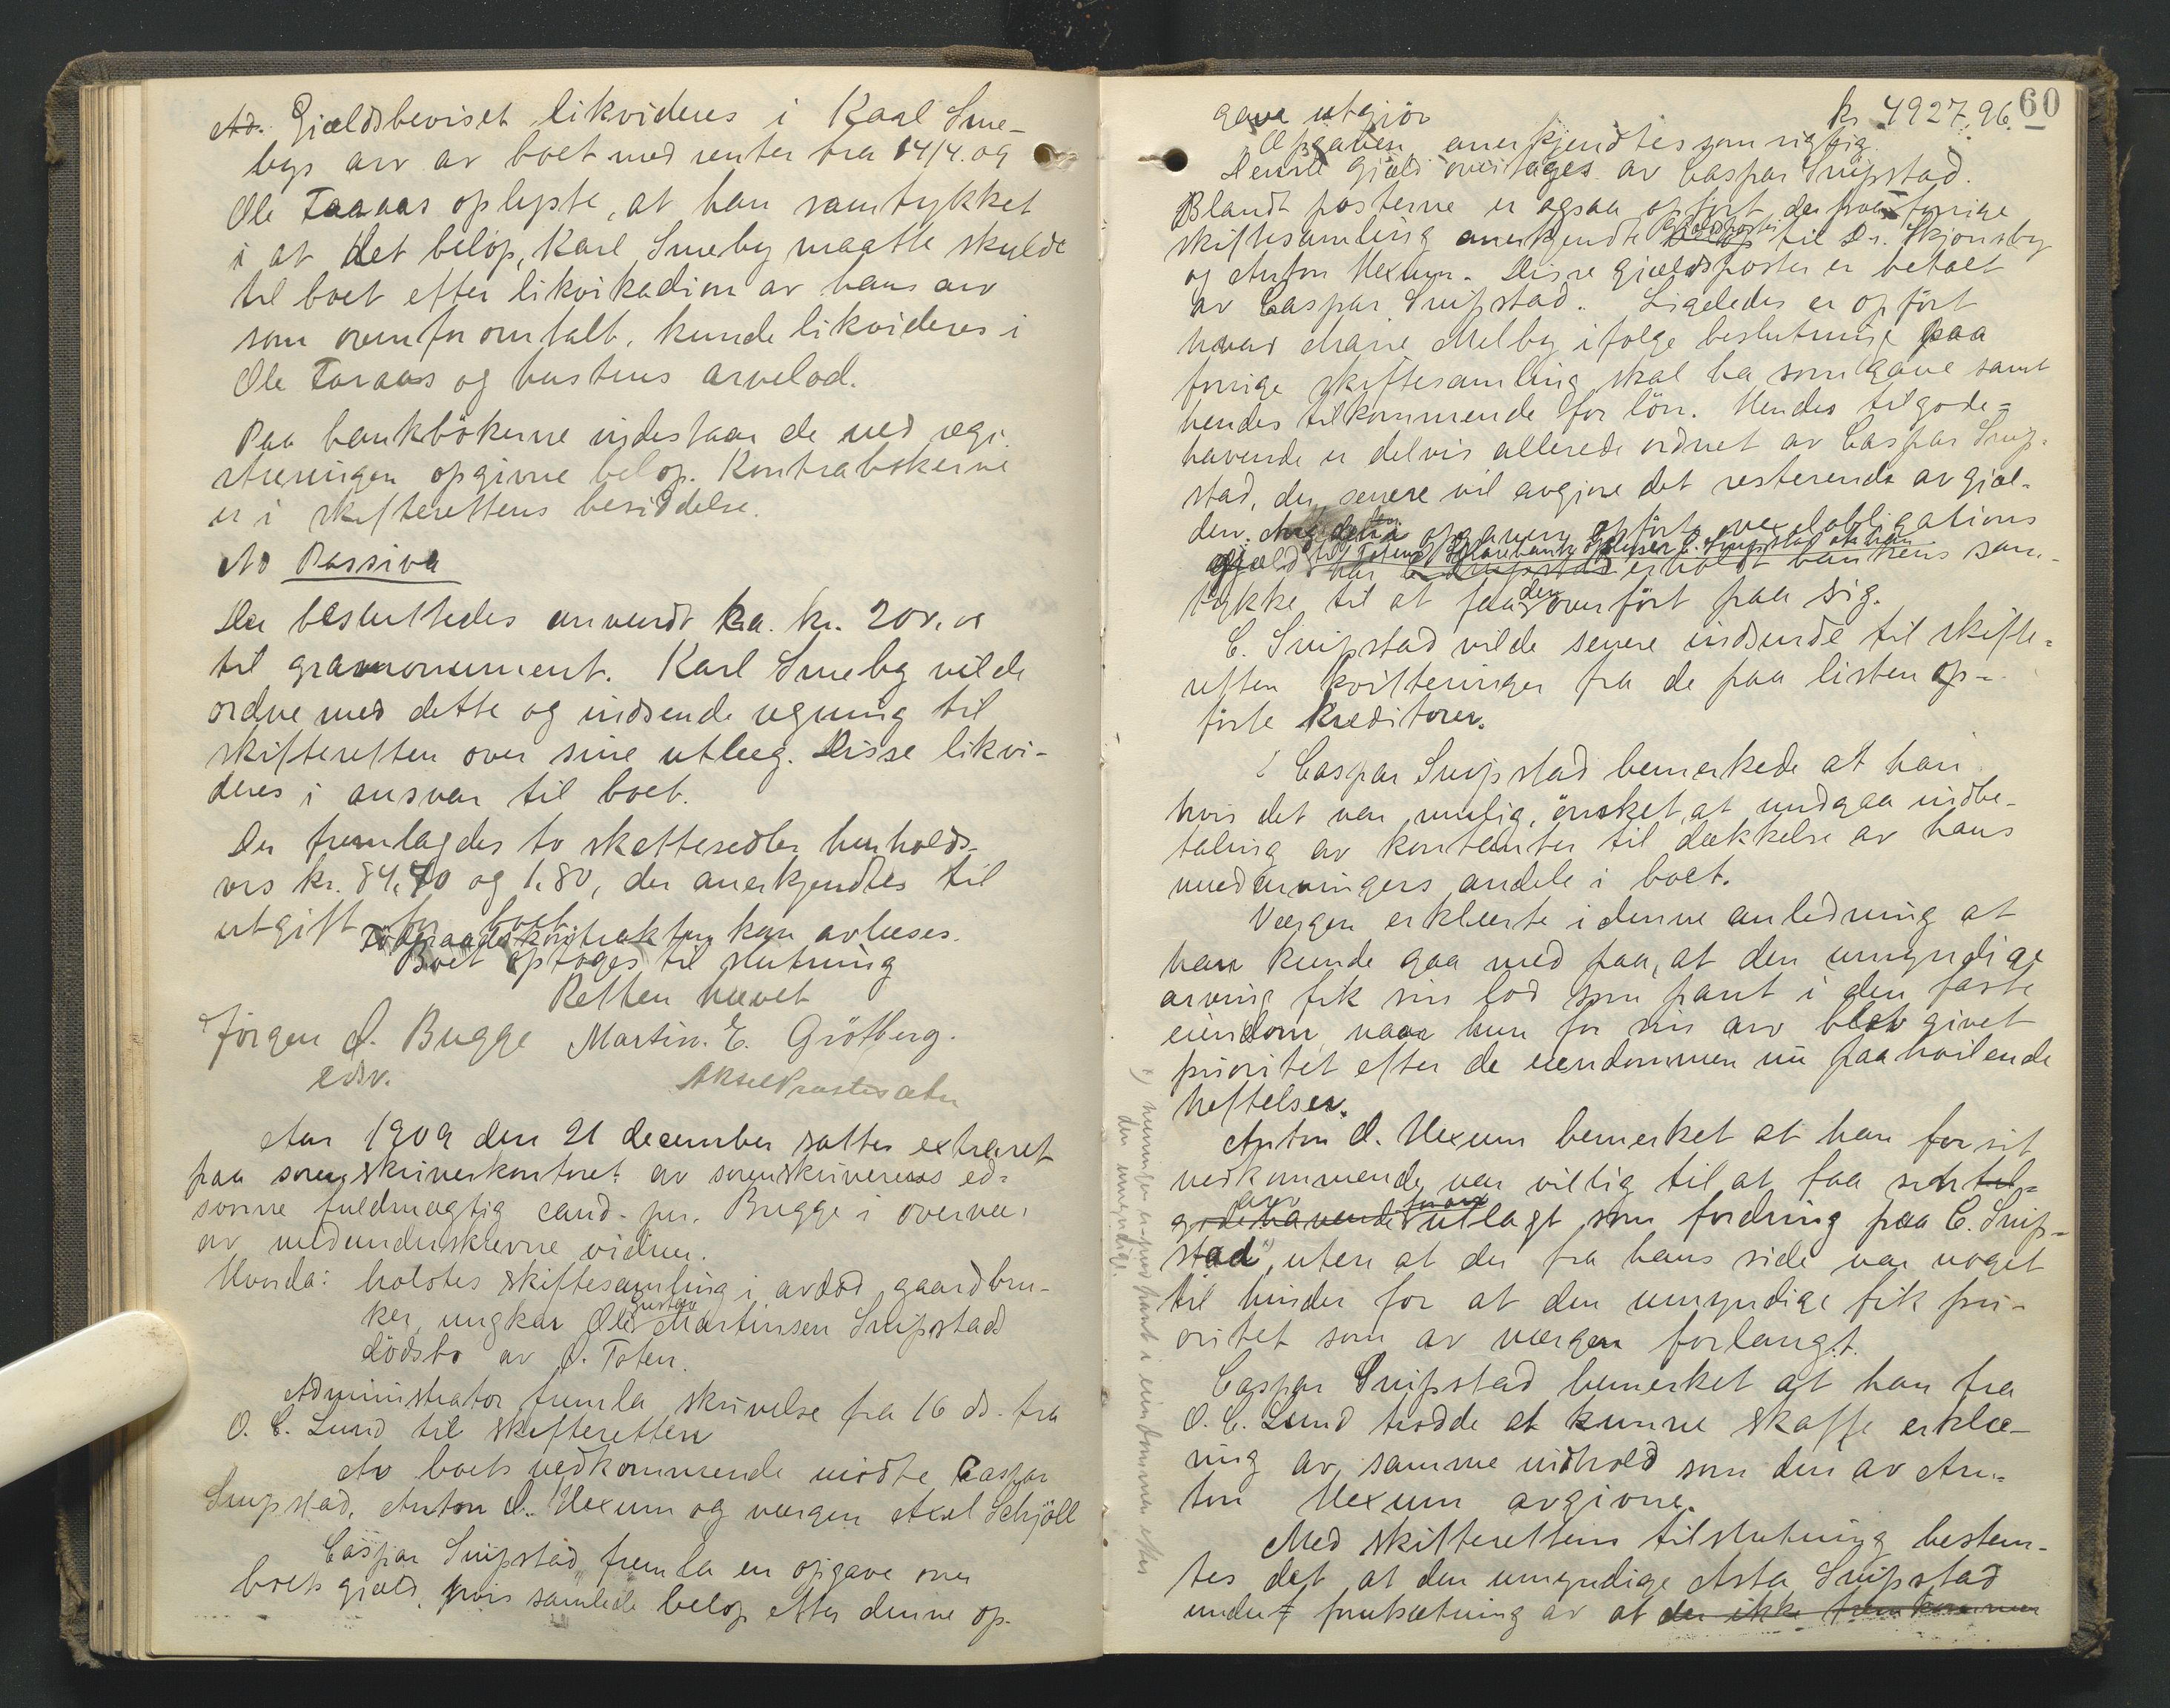 Ad. Gjældsbeviset likvideres i Karl Sme-
bys arv av boet med renter fra 14/4. 09
Ole Taraas oplyste, at han samtykket
i at det beløp, Karl Smeby maatte skylde
til boet efter likvikadion av hans arv
som ovenfor omtalt, kunde likvideres i
Ole Taraas og hustrus arvelod.
Paa bankbökerne indestaar de ved regi-
streringen opgivne belöp. Kontrabökerne
er i skifterettens besiddelse.
Ad Passiva
Der besluttedes anvendt ca. kr. 200,00
til gravmonument. Karl Smeby vilde
ordne med dette og indsende regning til
skifteretten over sine utlæg. Disse likvi-
deres i ansvar til boet.
Der fremlagdes to skattesedler henholds-
vis kr. 84,70 og 1,80, der anerkjendtes til
utgift for boet.
Födraadskontrakten kan avlæses.
Boet optoges til slutning
Retten hævet
Jörgen S. Bugge Martin. E. Grötberg.
edsv.
Aksel Prestesæter
Aar 1909 den 21 december sattes extraret
paa sorenskriverkontoret av sorenskriverens ed-
svorne fuldmægtig cand. jur. Bugge i overvær
av medunderskrevne vidner.
Hvorda: holdtes skiftesamling i avdöd gaardbru-
ker, ungkar Ole Gustav Martinsen Snipstads
dödsbo av Ö. Toten.
Administrator fremla skrivelse fra 16 ds. fra
O. C. Lund til skifteretten
Av boets vedkommende mödte Caspar
Snipstad, Anton O. Hexum og vergen Axel Schjöll
Caspar Snipstad fremla en opgave over
boets gjæld, hvis samlede belöp efter denne op-
60
gave utgjör kr 4927,96.
Opgaven anerkjendtes som rigtig.
Denne gjæld overtages av Caspar Snipstad.
Blandt posterne er ogsaa opfört de paa forrige
skiftesamling anerkjendte gjældsposter til Dr. Skjönsby
og Anton Hexum. Disse gjældsposter er betalt
av Caspar Snipstad. Ligeledes er opfört
hvad Marie Melby ifölge beslutning paa
forrige skiftesamling skal ha som gave samt
hendes tilkommende for lön. Hendes tilgode-
havende er delvis allerede ordnet av Caspar Snip-
stad, der senere vil avgjöre det resterende av gjæl-
den. opgaven opförte vexelobligations
gjæld til Totens Sparebank oplyser C. Snipstad at han
har C Snipstad erholdt bankens sam-
tykke til at faa den overfört paa sig.
C. Snipstad vilde senere indsende til skifte-
retten kvitteringer fra de paa listen op-
förte kreditorer.
Caspar Snipstad bemerkede at han
hvis det var mulig, önsket at undgaa indbe-
taling av kontanter til dækkelse av hans
medarvingers andele i boet.
Vergen erklærte i denne anledning at
han kunde gaa med paa, at den umyndige
arving fik sin lod som pant i den faste
eiendom, naar hun for sin arv blev givet
prioritet efter de eiendommen nu paahvilende
heftelser.
Anton O. Hexum bemerket at han for sit
vedkommende var villig til at faa sin til-
godehavende arv utlagt som fordring paa C. Snip-
stad x), uten at der fra hans side var noget
til hinder for at den umyndige fik pri-
oritet som av vergen forlangt.
Caspar Snipstad bemerket at han fra
O. C. Lund trodde at kunne skaffe erklæ-
ring av samme indhold som den av An-
ton Hexum avgivne.
Med skifterettens tilslutning bestem-
tes det at den umyndige Asta Snipstad
under forutsætning av at der ikke fremkommer
x) pant i eiendommen efter
den umyndige.